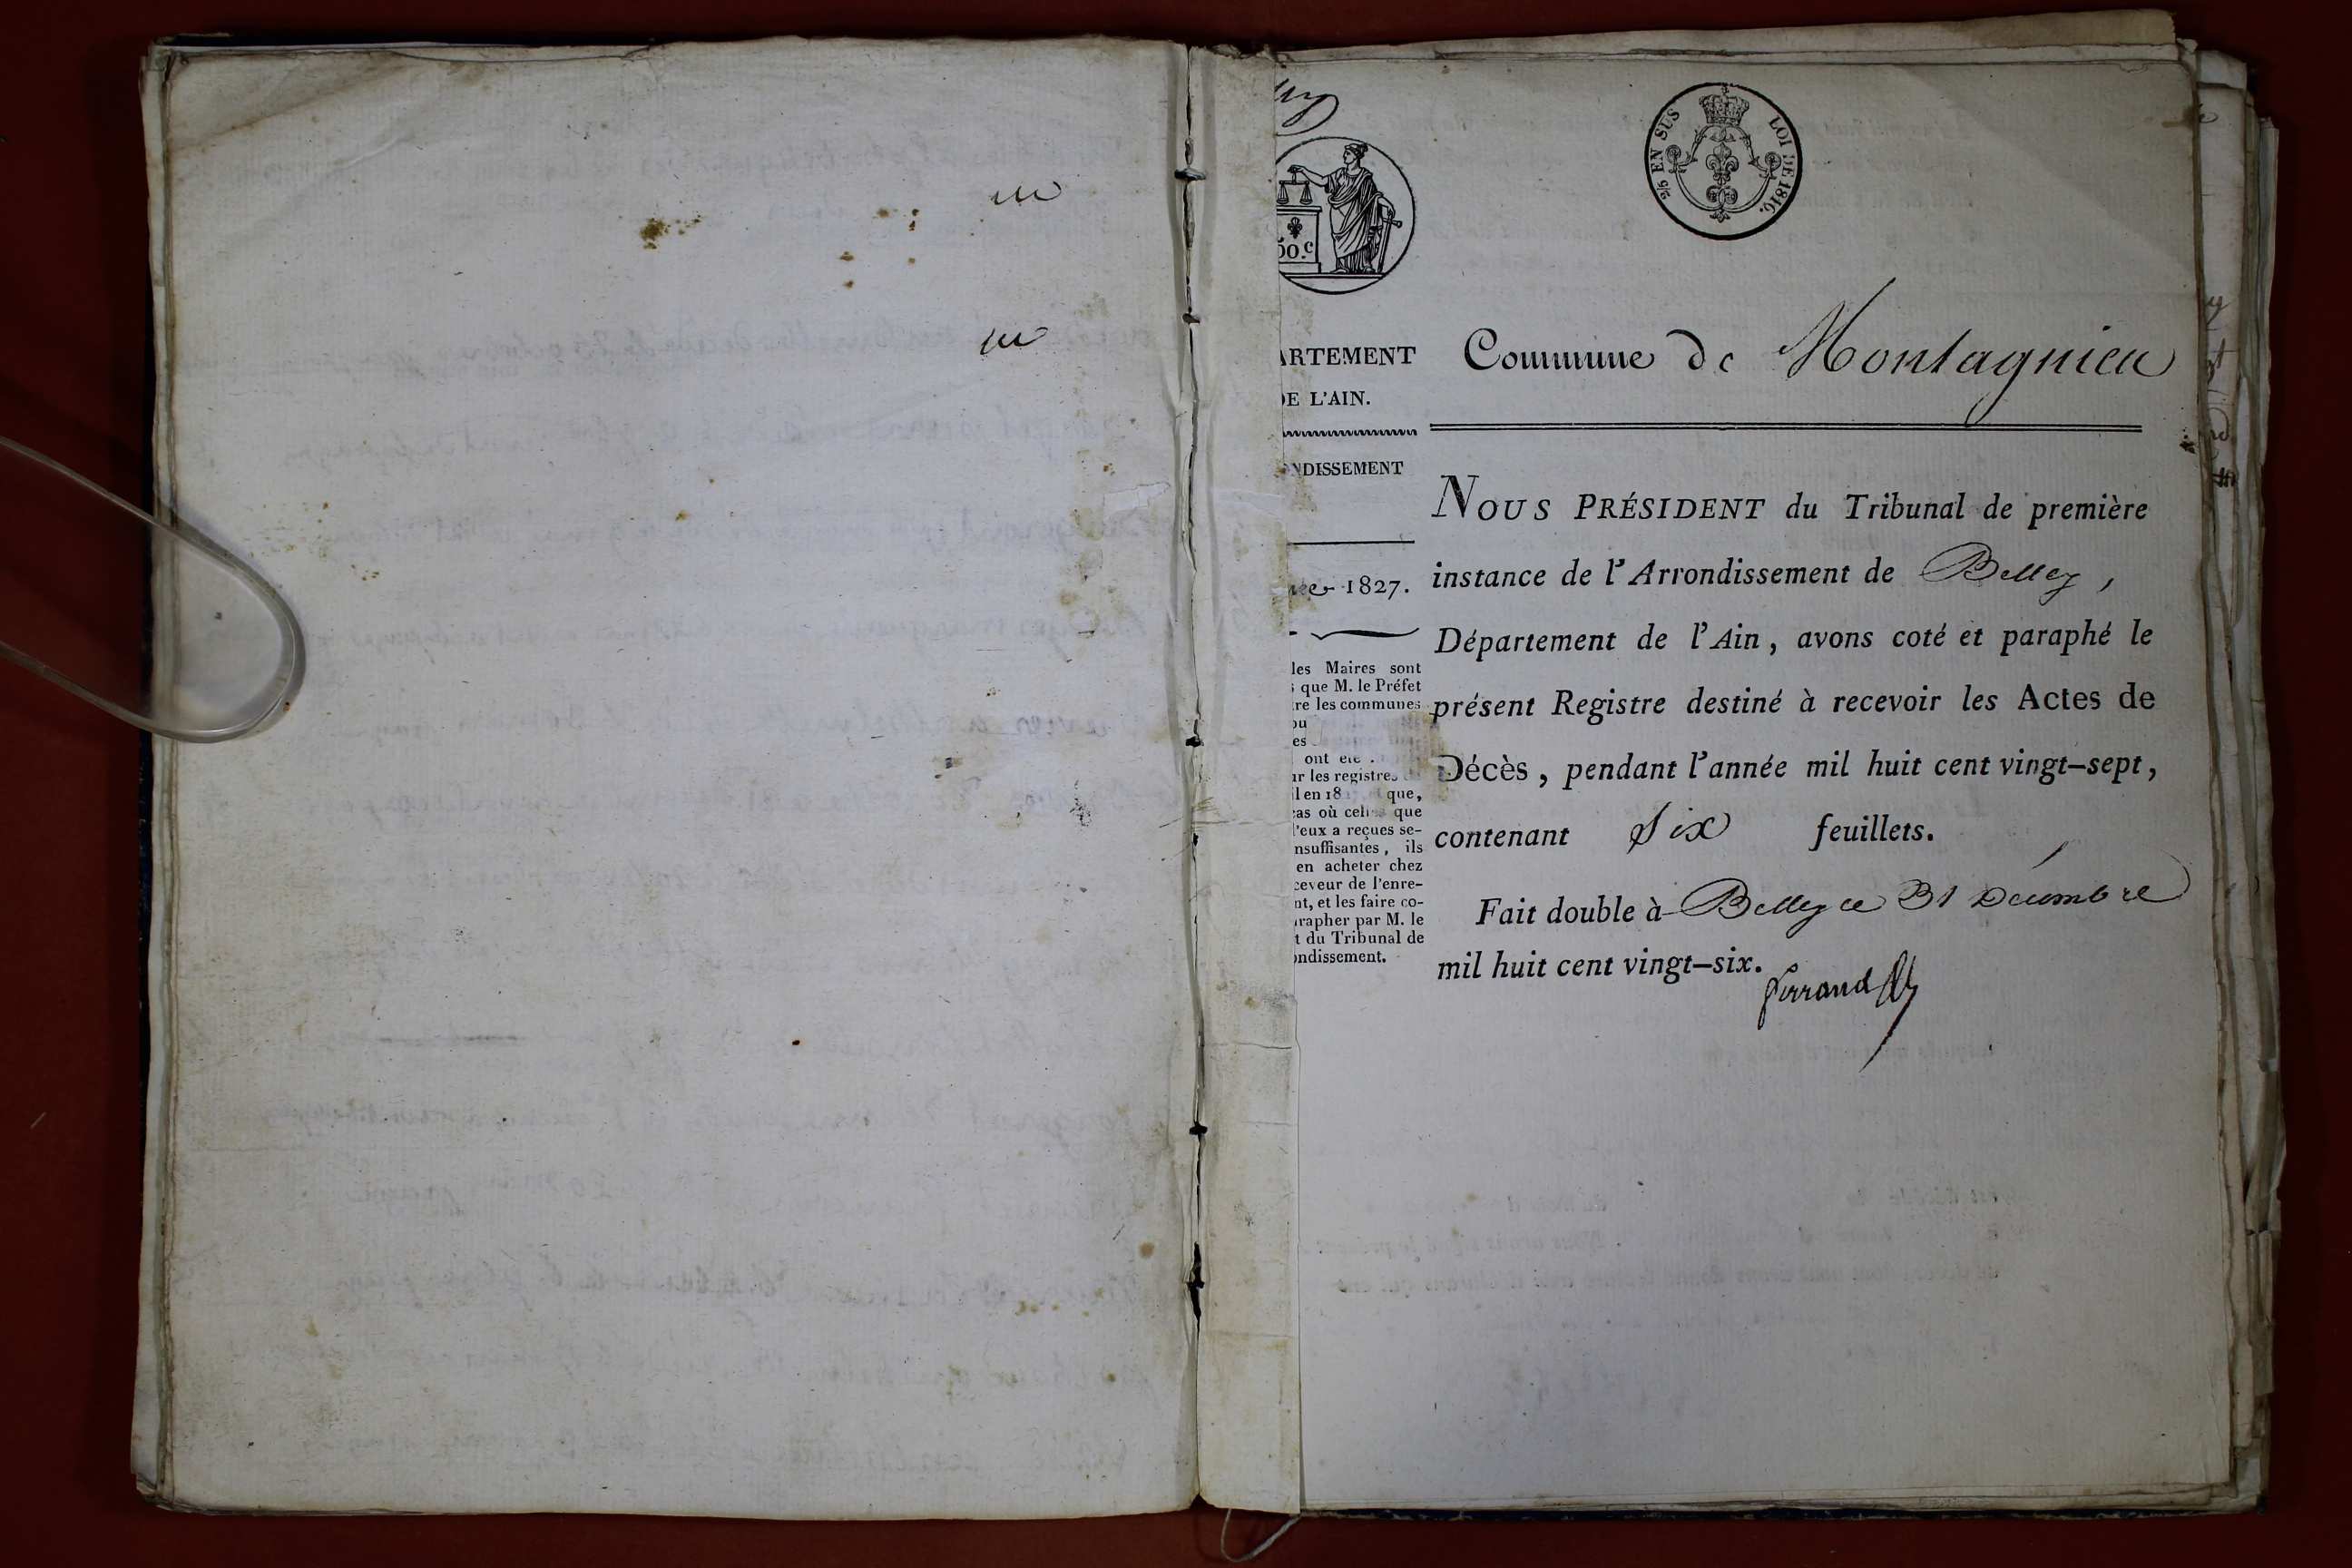 2/5 EN SUS
LOI DE 1816.
50.c
ARTEMENT
DE L'AIN.
NDISSEMENT
1827.
les Maires sont
que M. le Préfet
re les communes
ou
es
ont été
ur les registres
il en 18 que,
cas où celles que
l'eux a reçues se-
nsuffisantes, ils
en acheter chez
ceveur de l'enre-
nt, et les faire co-
arapher par M. le
t du Tribunal de
ondissement.
Commune de Montagnieu
NOUS PRÉSIDENT du Tribunal de première
instance de l'Arrondissement de Belley,
Département de l'Ain, avons coté et paraphé le
présent Registre destiné à recevoir les Actes de
Décès, pendant l'année mil huit cent vingt-sept,
contenant six feuillets.
Fait double à Belley ce 31 Décembre
mil huit cent vingt-six.